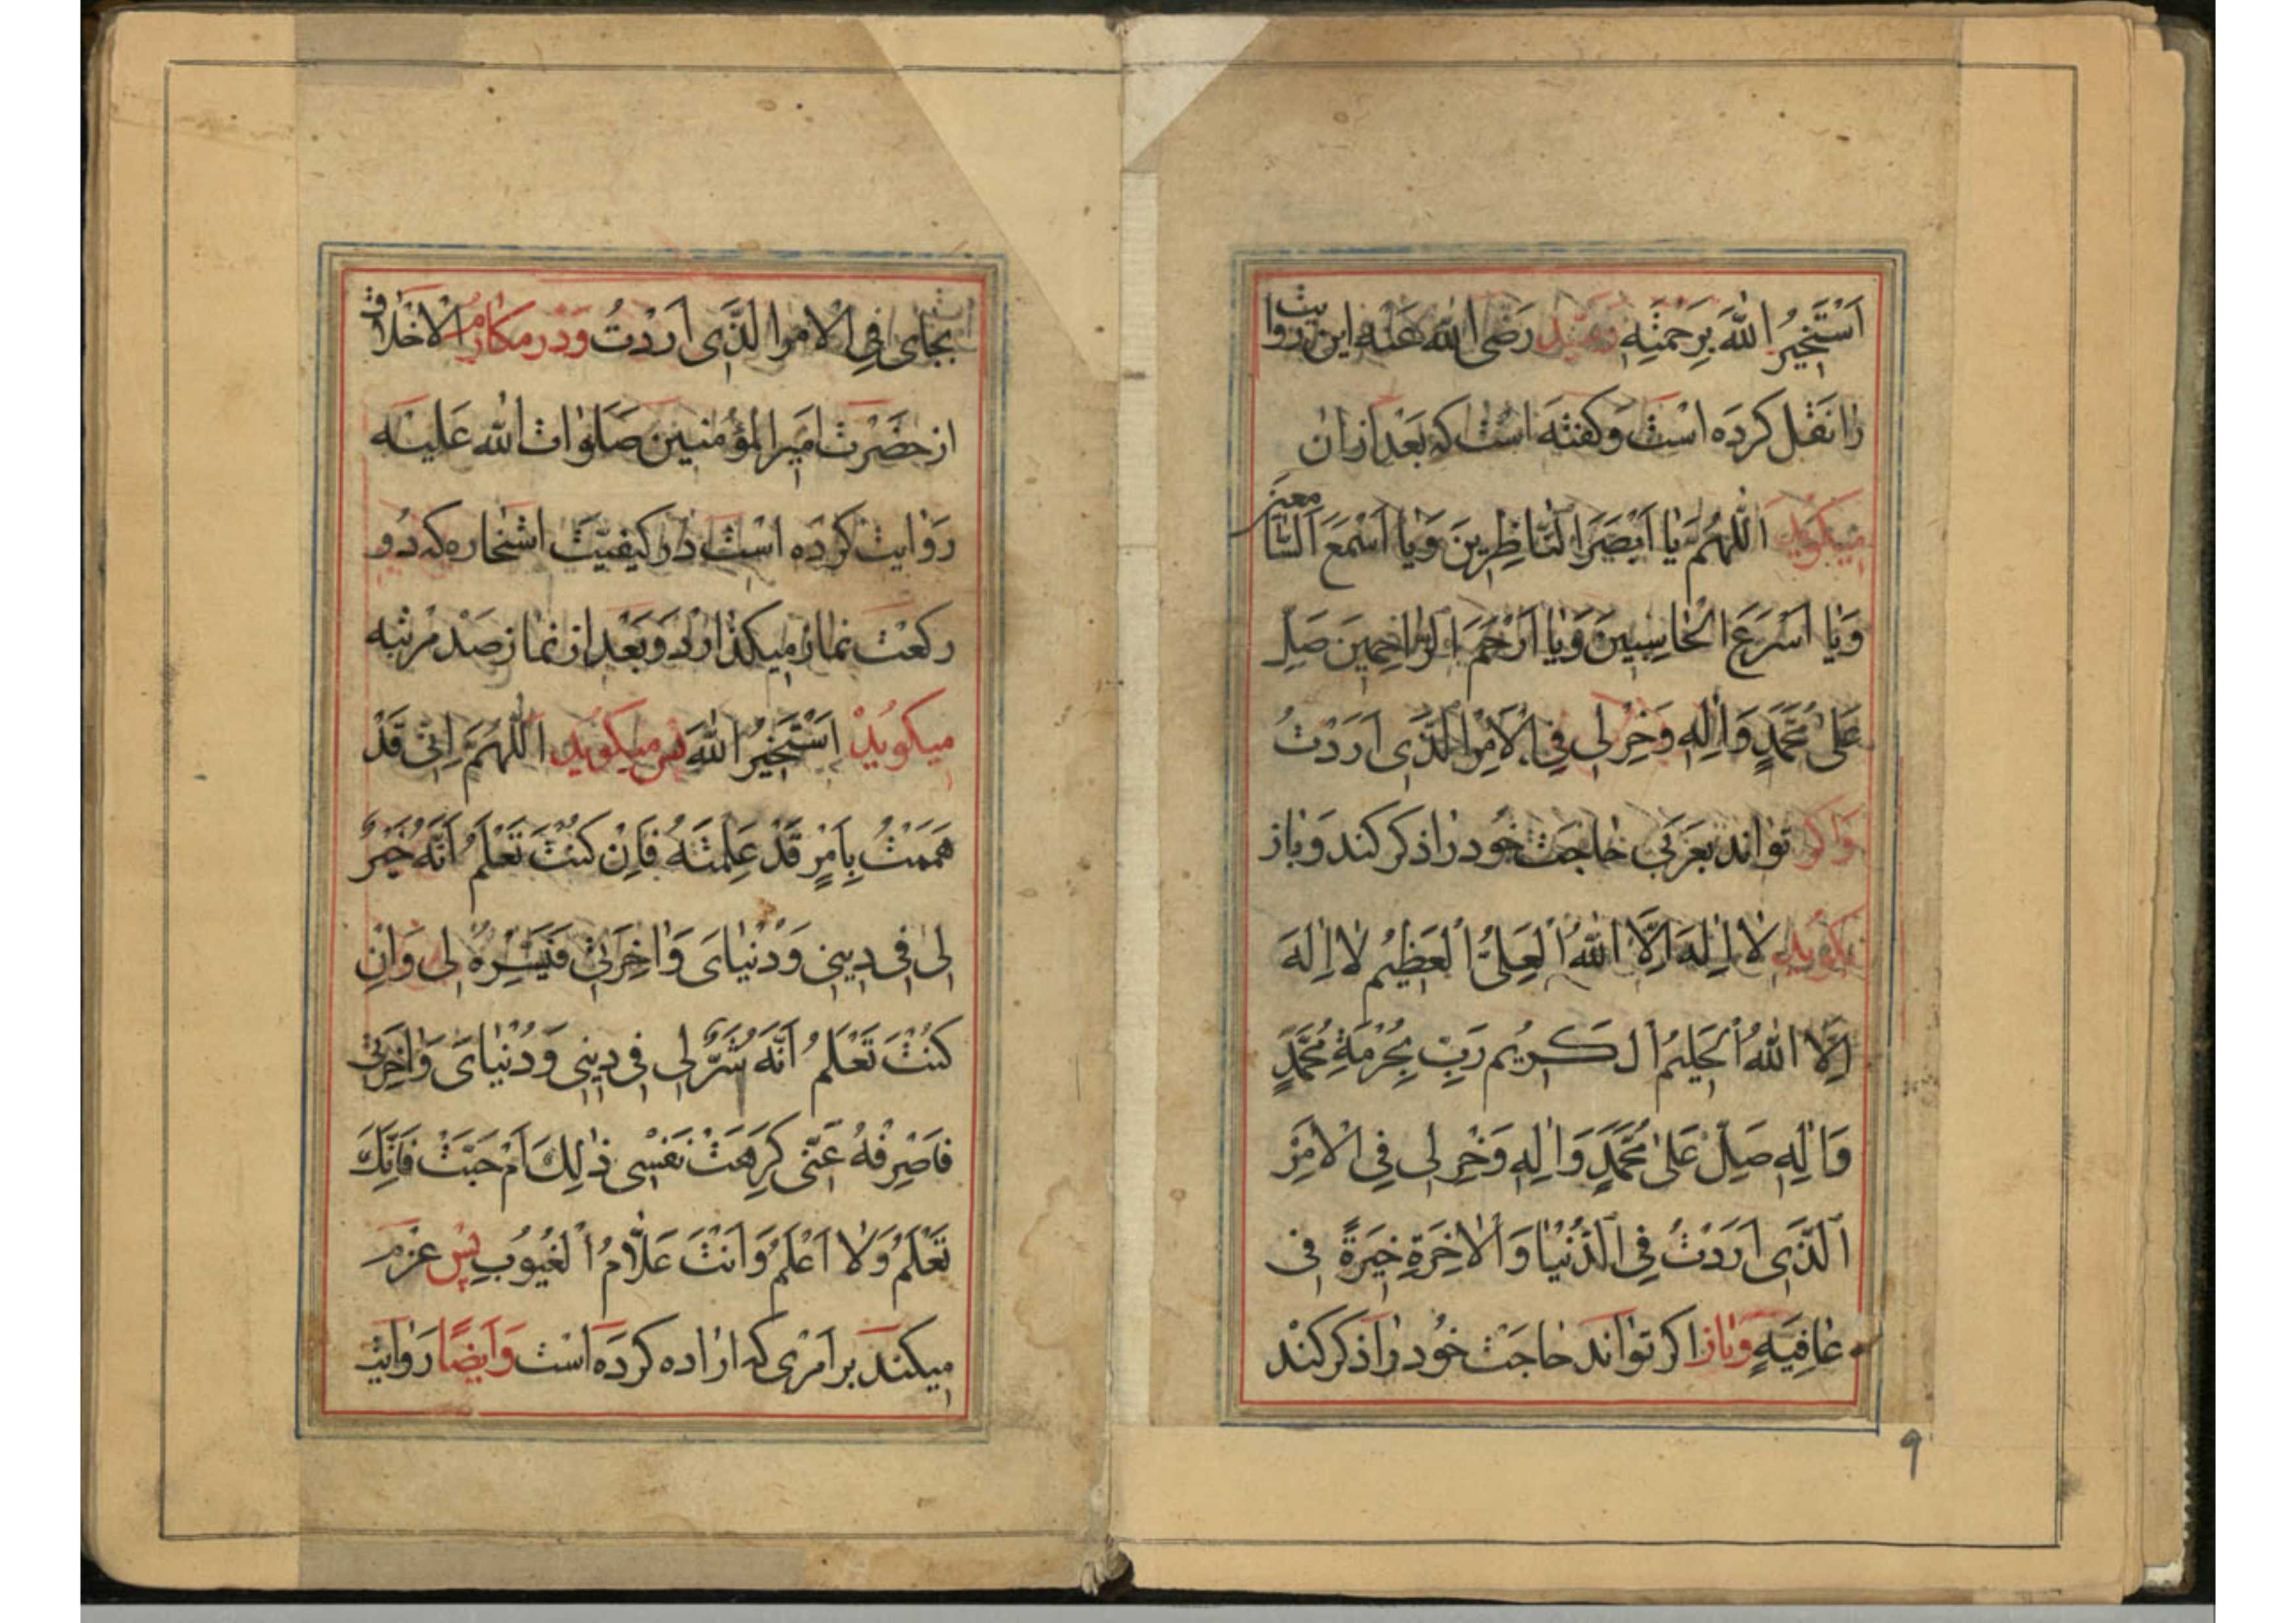 اَسْتَخِيرُ اللّٰهَ بِرَحْمَتِهِ وَسَيِّد رَضِىَ اللّٰه عَنْهُ اين روايت
را نَقْل كرده است وَكفته است كه بَعْد ازان
ميكويد اَللّٰهُمَّ يٰا اَبْصَرَ النّٰاظِرِينَ وَيٰا اَسْمَعَ السّٰامعين
وَيٰا اَسْرَعَ الْحٰاسِبِينَ وَيٰا اَرْحَمَ الرّٰاحِمِينَ صَلِّ
عَلىٰ مُحَمَّدٍ وَاٰلِهِ وَخِرْ لِى فِى الْاَمْرِ الَّذِى اَرَدْتُ
وَاكر تواند بعَرَبى حٰاجت خود را ذكر كند وَباز
بكويد لٰا اِلٰهَ اِلَّا اللّٰهُ الْعَلِىُّ الْعَظِيمُ لٰا اِلٰهَ
اِلَّا اللّٰهُ الْحَلِيمُ الْكَرِيُم رَبِّ بِحُرْمَةِ مُحَمَّدٍ
وَاٰلِهِ صَلِّ عَلىٰ مُحَمَّدٍ وَاٰلِهِ وَخِرْ لِى فِى الْاَمْرِ
الَّذِى اَرَدْتُ فِى الدُّنْيٰا وَالْاٰخِرَةِ خِيَرَةً فِى
عٰافِيَةٍ وَباز اكر تواند حٰاجَت خود را ذكر كند
۹
بجاى فِى الْاَمْرِ الَّذِى اَرَدْتُ وَدر مكارم الاخلاق
از حضرت امير المؤمنين صَلَوٰات اللّٰه عَليه
رَوايت كرده است در كيفيّت استخاره كه دو
ركعت نماز ميكذارد وَبَعْد از نماز صَد مرتبه
ميكويد اَسْتَخِيرُ اللّٰهَ پس ميكويد اَللّٰهُمَّ اِنِّى قَدْ
هَمَمْتُ بِاَمْرٍ قَدْ عَلِمْتَهُ فَاِنْ كُنْتَ تَعْلَمُ اَنَّهُ خَيْرٌ
لِى فِى دِينِى وَدُنْيٰاىَ وَاٰخِرَتِى فَيَسِّرْهُ لِى وَاِنْ
كُنْتَ تَعْلَمُ اَنَّهُ شَرٌّ لِى فِى دِينِى وَدُنْيٰاىَ وَاٰخِرَتِى
فَاصْرِفْهُ عَنِّى كَرِهَتْ نَفْسِى ذٰلِكَ اَمْ حَبَّتْ فَاِنَّكَ
تَعْلَمُ وَلٰا اَعْلَمُ وَاَنْتَ عَلّٰامُ الْغُيُوبِ پس عزم
ميكند بر امرى كه اراده كرده است وَايضًا رَوايت